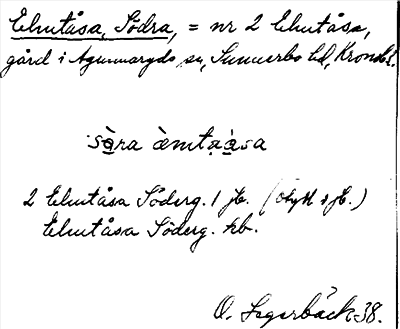 Elmtåsa, Södra, = nr 2 Elmtåsa,
gård i Agunnaryds sn, Sunnerbo hd, Kronob. l.
sɑ̀ra æ̀mtaása
2 Elmtåsa Söderg. 1 jb. (otytt i jb.)
Elmtåsa Söderg. kb.
O. Segerbäck 38.